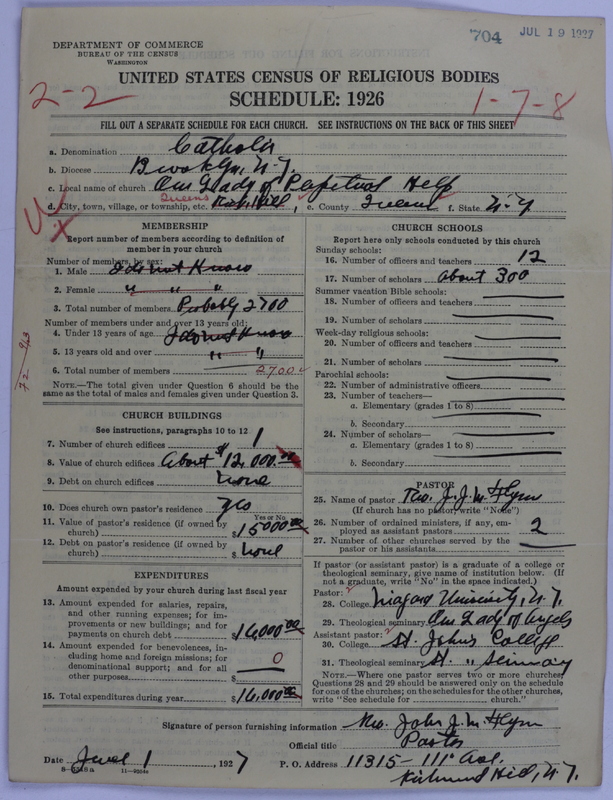 704 JUL 19 1927
DEPARTMENT OF COMMERCE
BUREAU OF THE CENSUS
WASHINGTON
UNITED STATES CENSUS OF RELIGIOUS BODIES
2-2 SCHEDULE: 1926 1-7-8
FILL OUT A SEPARATE SCHEDULE FOR EACH CHURCH. SEE INSTRUCTIONS ON THE BACK OF THIS SHEET
a. Denomination Catholic
b. Diocese Brooklyn, N.Y.
c. Local name of church Our Lady of Perpetual Help
d. City, town, village, or township, etc. Queens Rich. Hill, e. County Queens f. State N.Y
MEMBERSHIP
Report number of members according to definition of
member in your church
Number of members, by sex:
1. Male I do not Know
2. Female " " "
3. Total number of members Probably 2700
Number of members under and over 13 years old:
4. Under 13 years of age I do not Know
5. 13 years old and over " "
6. Total number of members 2700
NOTE.—The total given under Question 6 should be the
same as the total of males and females given under Question 3.
CHURCH BUILDINGS
See instructions, paragraphs 10 to 12
7. Number of church edifices 1
8. Value of church edifices About $12,000.00
9. Debt on church edifices None
10. Does church own pastor's residence Yes
Yes or No
11. Value of pastor's residence (if owned by
church) $15000.00
12. Debt on pastor's residence (if owned by
church) $ None
EXPENDITURES
Amount expended by your church during last fiscal year
13. Amount expended for salaries, repairs,
and other running expenses; for im-
provements or new buildings; and for
payments on church debt $16,000.00
14. Amount expended for benevolences, in-
cluding home and foreign missions; for
denominational support; and for all
other purposes $ 0
15. Total expenditures during year $16,000.00
CHURCH SCHOOLS
Report here only schools conducted by this church
Sunday schools:
16. Number of officers and teachers 12
17. Number of scholars About 300
Summer vacation Bible schools:
18. Number of officers and teachers
19. Number of scholars
Week-day religious schools:
20. Number of officers and teachers
21. Number of scholars
Parochial schools:
22. Number of administrative officers
23. Number of teachers—
a. Elementary (grades 1 to 8)
b. Secondary
24. Number of scholars—
a. Elementary (grades 1 to 8)
b. Secondary
PASTOR
25. Name of pastor Rev. J. J. M. Flynn
(If church has no pastor, write "None")
26. Number of ordained ministers, if any, em-
ployed as assistant pastors 2
27. Number of other churches served by the
pastor or his assistants
If pastor (or assistant pastor) is a graduate of a college or
theological seminary, give name of institution below. (If
not a graduate, write "No" in the space indicated.)
Pastor:
28. College Niagara University, N.Y.
29. Theological seminary Our Lady of Angels
Assistant pastor:
30. College St. Johns College
31. Theological seminary St. " Seminary
NOTE.—Where one pastor serves two or more churches,
Questions 28 and 29 should be answered only on the schedule
for one of the churches; on the schedules for the other churches,
write "See schedule for church."
Signature of person furnishing information Rev. John J. M. Flynn
Official title Pastor
Date June 1, 1927 P. O. Address 11315 - 111th Ave.
Richmond Hill, N.Y.